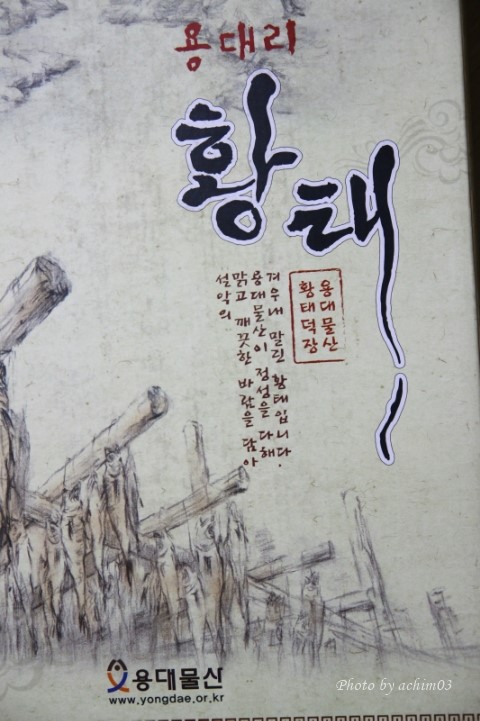 용대리
황태
설악의
맑고 깨끗한 바람을 담아
용대물산이 정성을 다해
겨우내 말린 황태입니다.
용대물산
황태덕장
용대물산
www.yongdae.or.kr
Photo by achim03